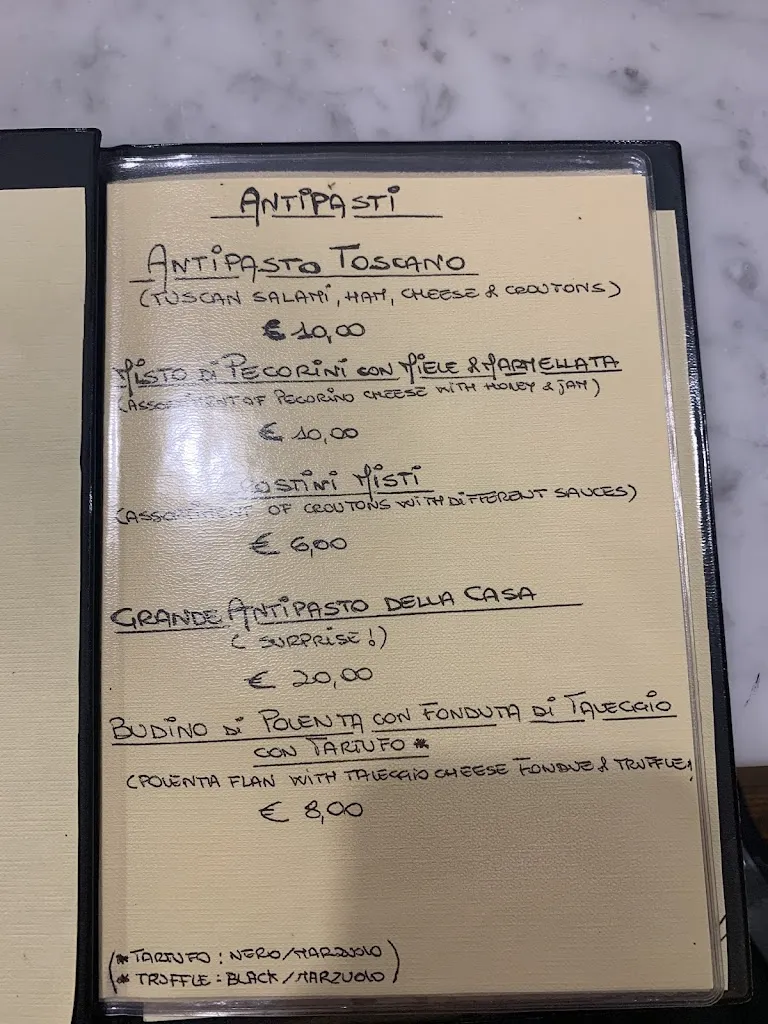 ANTIPASTI
ANTIPASTO TOSCANO
(TUSCAN SALAMI, HAM, CHEESE & CROUTONS)
€ 10,00
MISTO DI PECORINI CON MIELE & MARMELLATA
(ASSORTMENT OF PECORINO CHEESE WITH HONEY & JAM)
€ 10,00
CROSTINI MISTI
(ASSORTMENT OF CROUTONS WITH DIFFERENT SAUCES)
€ 6,00
GRANDE ANTIPASTO DELLA CASA
(SURPRISE!)
€ 20,00
BUDINO DI POLENTA CON FONDUTA DI TALEGGIO
CON TARTUFO *
(POLENTA FLAN WITH TALEGGIO CHEESE FONDUE & TRUFFLE)
€ 8,00
(* TARTUFO : NERO/MARZUOLO
* TRUFFLE : BLACK/MARZUOLO)